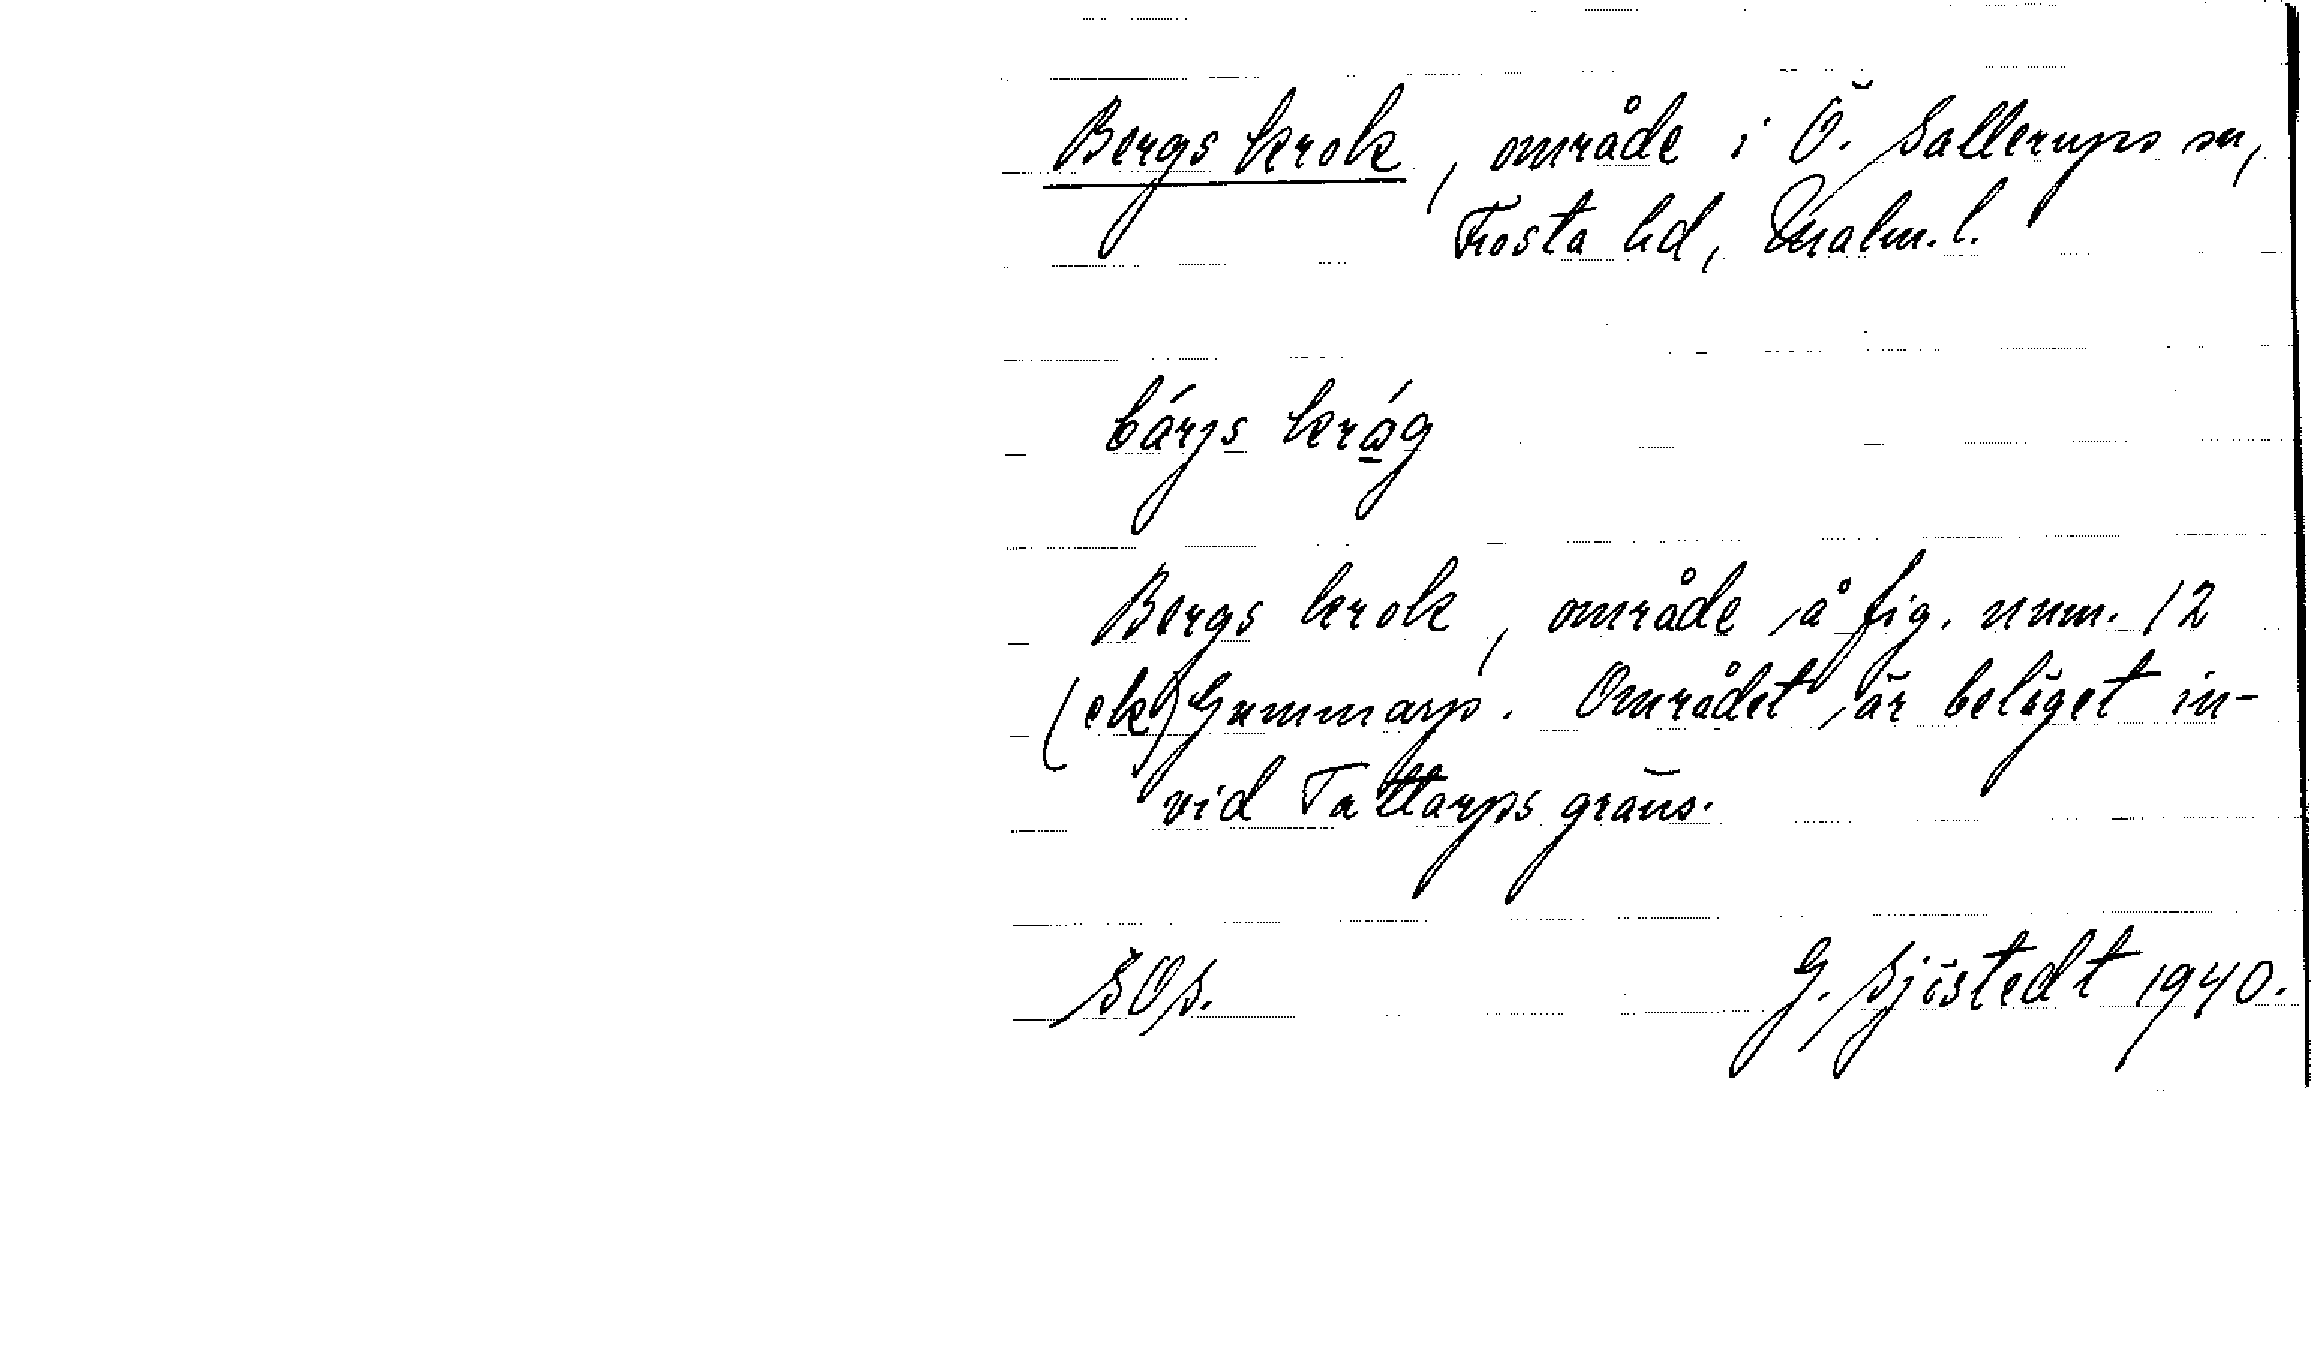 Bergs krok, område i Ö. Sallerups sn,
Frosta hd, Malm. l.
bárjs kråg
Bergs krok, område å fig. num. 12
(ek) Gummarp. Området är beläget in-
vid Tattarps gräns.
SOS.
G. Sjöstedt 1940.